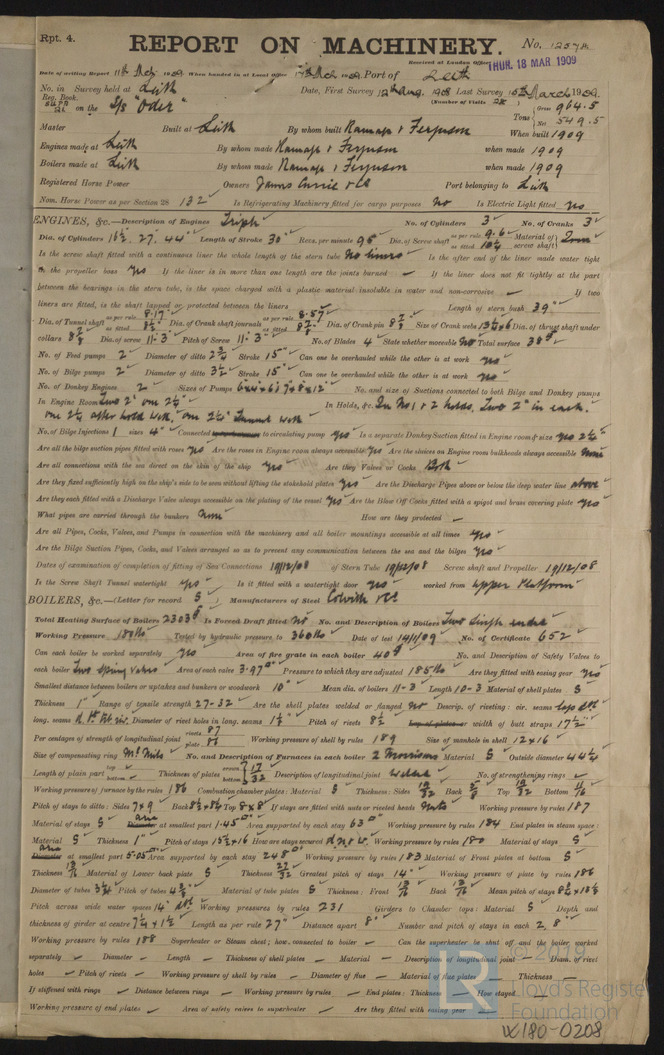 Rpt. 4.
REPORT ON MACHINERY.
No. 1257A
Received at London Office THUR. 18 MAR 1909
Date of writing Report 11th Mch 1909 When handed in at Local Office 17th Mch 1909 Port of Leith
No. in Survey held at Leith Date, First Survey 12th Aug. 1908 Last Survey 15th March 1909
Reg. Book. (Number of Visits 28)
on the S/s "Oder" Tons Gross 964.5 Net 549.5
Master Built at Leith By whom built Ramage & Ferguson When built 1909
Engines made at Leith By whom made Ramage & Ferguson when made 1909
Boilers made at Leith By whom made Ramage & Ferguson when made 1909
Registered Horse Power Owners James Currie & Co Port belonging to Leith
Nom. Horse Power as per Section 28 132 Is Refrigerating Machinery fitted for cargo purposes No Is Electric Light fitted yes
ENGINES, &c.—Description of Engines Triple No. of Cylinders 3 No. of Cranks 3
Dia. of Cylinders 16½, 27, 44 Length of Stroke 30 Revs. per minute 95 Dia. of Screw shaft as per rule 9.6 as fitted 10¼ Material of screw shaft Iron
Is the screw shaft fitted with a continuous liner the whole length of the stern tube No liners Is the after end of the liner made water tight
in the propeller boss yes If the liner is in more than one length are the joints burned — If the liner does not fit tightly at the part
between the bearings in the stern tube, is the space charged with a plastic material insoluble in water and non-corrosive — If two
liners are fitted, is the shaft lapped or protected between the liners — Length of stern bush 39"
Dia. of Tunnel shaft as per rule 8.17 as fitted 8½ Dia. of Crank shaft journals as per rule 8.57 as fitted 8⅞ Dia. of Crank pin 8⅞ Size of Crank webs Dia. of thrust shaft under
collars 8⅞ Dia. of screw 11.3 Pitch of Screw 11.3 No. of Blades 4 State whether moveable No Total surface 38
No. of Feed pumps 2 Diameter of ditto 2¾ Stroke 15" Can one be overhauled while the other is at work yes
No. of Bilge pumps 2 Diameter of ditto 3½ Stroke 15" Can one be overhauled while the other is at work yes
No. of Donkey Engines 2 Sizes of Pumps No. and size of Suctions connected to both Bilge and Donkey pumps
In Engine Room Two 2" one 2¼" In Holds, &c. In No 1 & 2 holds, Two 2" in each.
one 2½ after hold well, one 2½" Tunnel well
No. of Bilge Injections 1 sizes 4" Connected to circulating pump yes Is a separate Donkey Suction fitted in Engine room & size yes 2½"
Are all the bilge suction pipes fitted with roses yes Are the roses in Engine room always accessible yes Are the sluices on Engine room bulkheads always accessible None
Are all connections with the sea direct on the skin of the ship yes Are they Valves or Cocks Both
Are they fixed sufficiently high on the ship's side to be seen without lifting the stokehold plates yes Are the Discharge Pipes above or below the deep water line above
Are they each fitted with a Discharge Valve always accessible on the plating of the vessel yes Are the Blow Off Cocks fitted with a spigot and brass covering plate yes
What pipes are carried through the bunkers None How are they protected —
Are all Pipes, Cocks, Valves, and Pumps in connection with the machinery and all boiler mountings accessible at all times yes
Are the Bilge Suction Pipes, Cocks, and Valves arranged so as to prevent any communication between the sea and the bilges yes
Dates of examination of completion of fitting of Sea Connections 19/12/08 of Stern Tube 19/12/08 Screw shaft and Propeller 19/12/08
Is the Screw Shaft Tunnel watertight yes Is it fitted with a watertight door yes worked from upper Platform
BOILERS, &c.—(Letter for record S) Manufacturers of Steel Colville & Co
Total Heating Surface of Boilers 2303 Is Forced Draft fitted No No. and Description of Boilers Two single ended
Working Pressure 180 lbs Tested by hydraulic pressure to 360 lbs Date of test 14/1/09 No. of Certificate 652
Can each boiler be worked separately yes Area of fire grate in each boiler 40 No. and Description of Safety Valves to
each boiler Two Spring valves Area of each valve 3.97 Pressure to which they are adjusted 185 lbs Are they fitted with easing gear yes
Smallest distance between boilers or uptakes and bunkers or woodwork 10" Mean dia. of boilers 11-3 Length 10-3 Material of shell plates S
Thickness 1" Range of tensile strength 27-32 Are the shell plates welded or flanged No Descrip. of riveting: cir. seams lap dbl
long. seams Diameter of rivet holes in long. seams Pitch of rivets 8½ width of butt straps 17½"
Per centages of strength of longitudinal joint rivets 87 plate 86 Working pressure of shell by rules 189 Size of manhole in shell 12×16
Size of compensating ring No. and Description of Furnaces in each boiler 2 Morrisons Material S Outside diameter 44¼
Length of plain part top — bottom — Thickness of plates crown bottom 17/32 Description of longitudinal joint welded No. of strengthening rings —
Working pressure of furnace by the rules 186 Combustion chamber plates: Material S Thickness: Sides Back Top Bottom
Pitch of stays to ditto: Sides 7×9 Back Top 8×8 If stays are fitted with nuts or riveted heads Nuts Working pressure by rules 187
Material of stays S area at smallest part 1.45 Area supported by each stay 63 Working pressure by rules 184 End plates in steam space:
Material S Thickness 1" Pitch of stays 15½×16 How are stays secured Working pressure by rules 180 Material of stays S
area at smallest part 5.05 Area supported by each stay 248 Working pressure by rules 183 Material of Front plates at bottom S
Thickness Material of Lower back plate S Thickness 27/32 Greatest pitch of stays 14" Working pressure of plate by rules 186
Diameter of tubes 3¼ Pitch of tubes Material of tube plates S Thickness: Front Back Mean pitch of stays
Pitch across wide water spaces 14" Working pressures by rules 231 Girders to Chamber tops: Material S Depth and
thickness of girder at centre 7¼×1½ Length as per rule 27" Distance apart 8" Number and pitch of stays in each 2, 8"
Working pressure by rules 188 Superheater or Steam chest; how connected to boiler — Can the superheater be shut off and the boiler worked
separately — Diameter — Length — Thickness of shell plates — Material — Description of longitudinal joint — Diam. of rivet
holes — Pitch of rivets — Working pressure of shell by rules — Diameter of flue — Material of flue plates — Thickness —
If stiffened with rings — Distance between rings — Working pressure by rules — End plates: Thickness — How stayed —
Working pressure of end plates — Area of safety valves to superheater — Are they fitted with easing gear —
© 2019
Lloyd's Register
Foundation
W180-0208